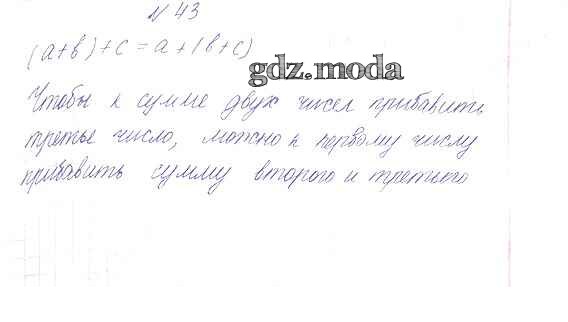 № 43
(а+в)+с=а+(в+с)
gdz.moda
Чтобы к сумме двух чисел прибавить
третье число, можно к первому числу
прибавить сумму второго и третьего